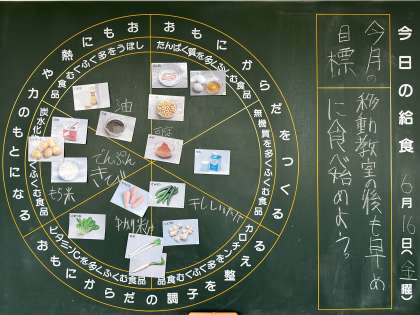 今日の給食
6月16日(金曜)
今月の
目標
移動教室の後も早め
に食べ始めよう。
おもにからだをつくる
たんぱく質を多くふくむ食品
無機質を多くふくむ食品
おもにからだの調子を整える
カロチンを多くふくむ食品
ビタミンCを多くふくむ食品
おもに熱や力のもとになる
炭水化物を多くふくむ食品
しぼうを多くふくむ食品
油
でんぷん
きび
もち米